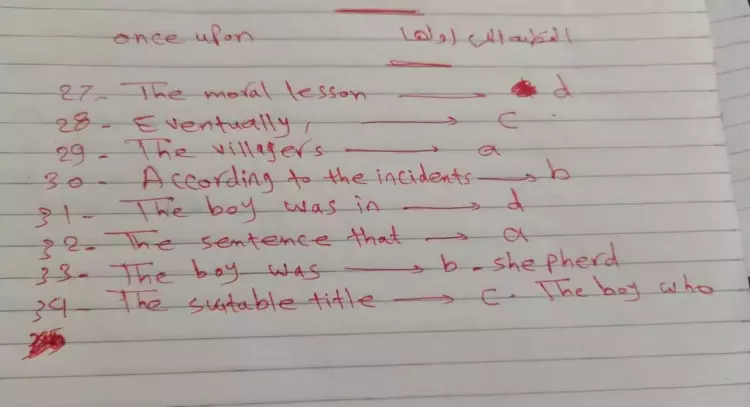 once upon القطعه التي اولها
27- The moral lesson → d
28- Eventually, → c
29- The villagers → a
30- According to the incidents → b
31- The boy was in → d
32- The sentence that → a
33- The boy was → b - shepherd
34- The suitable title → c. The boy who